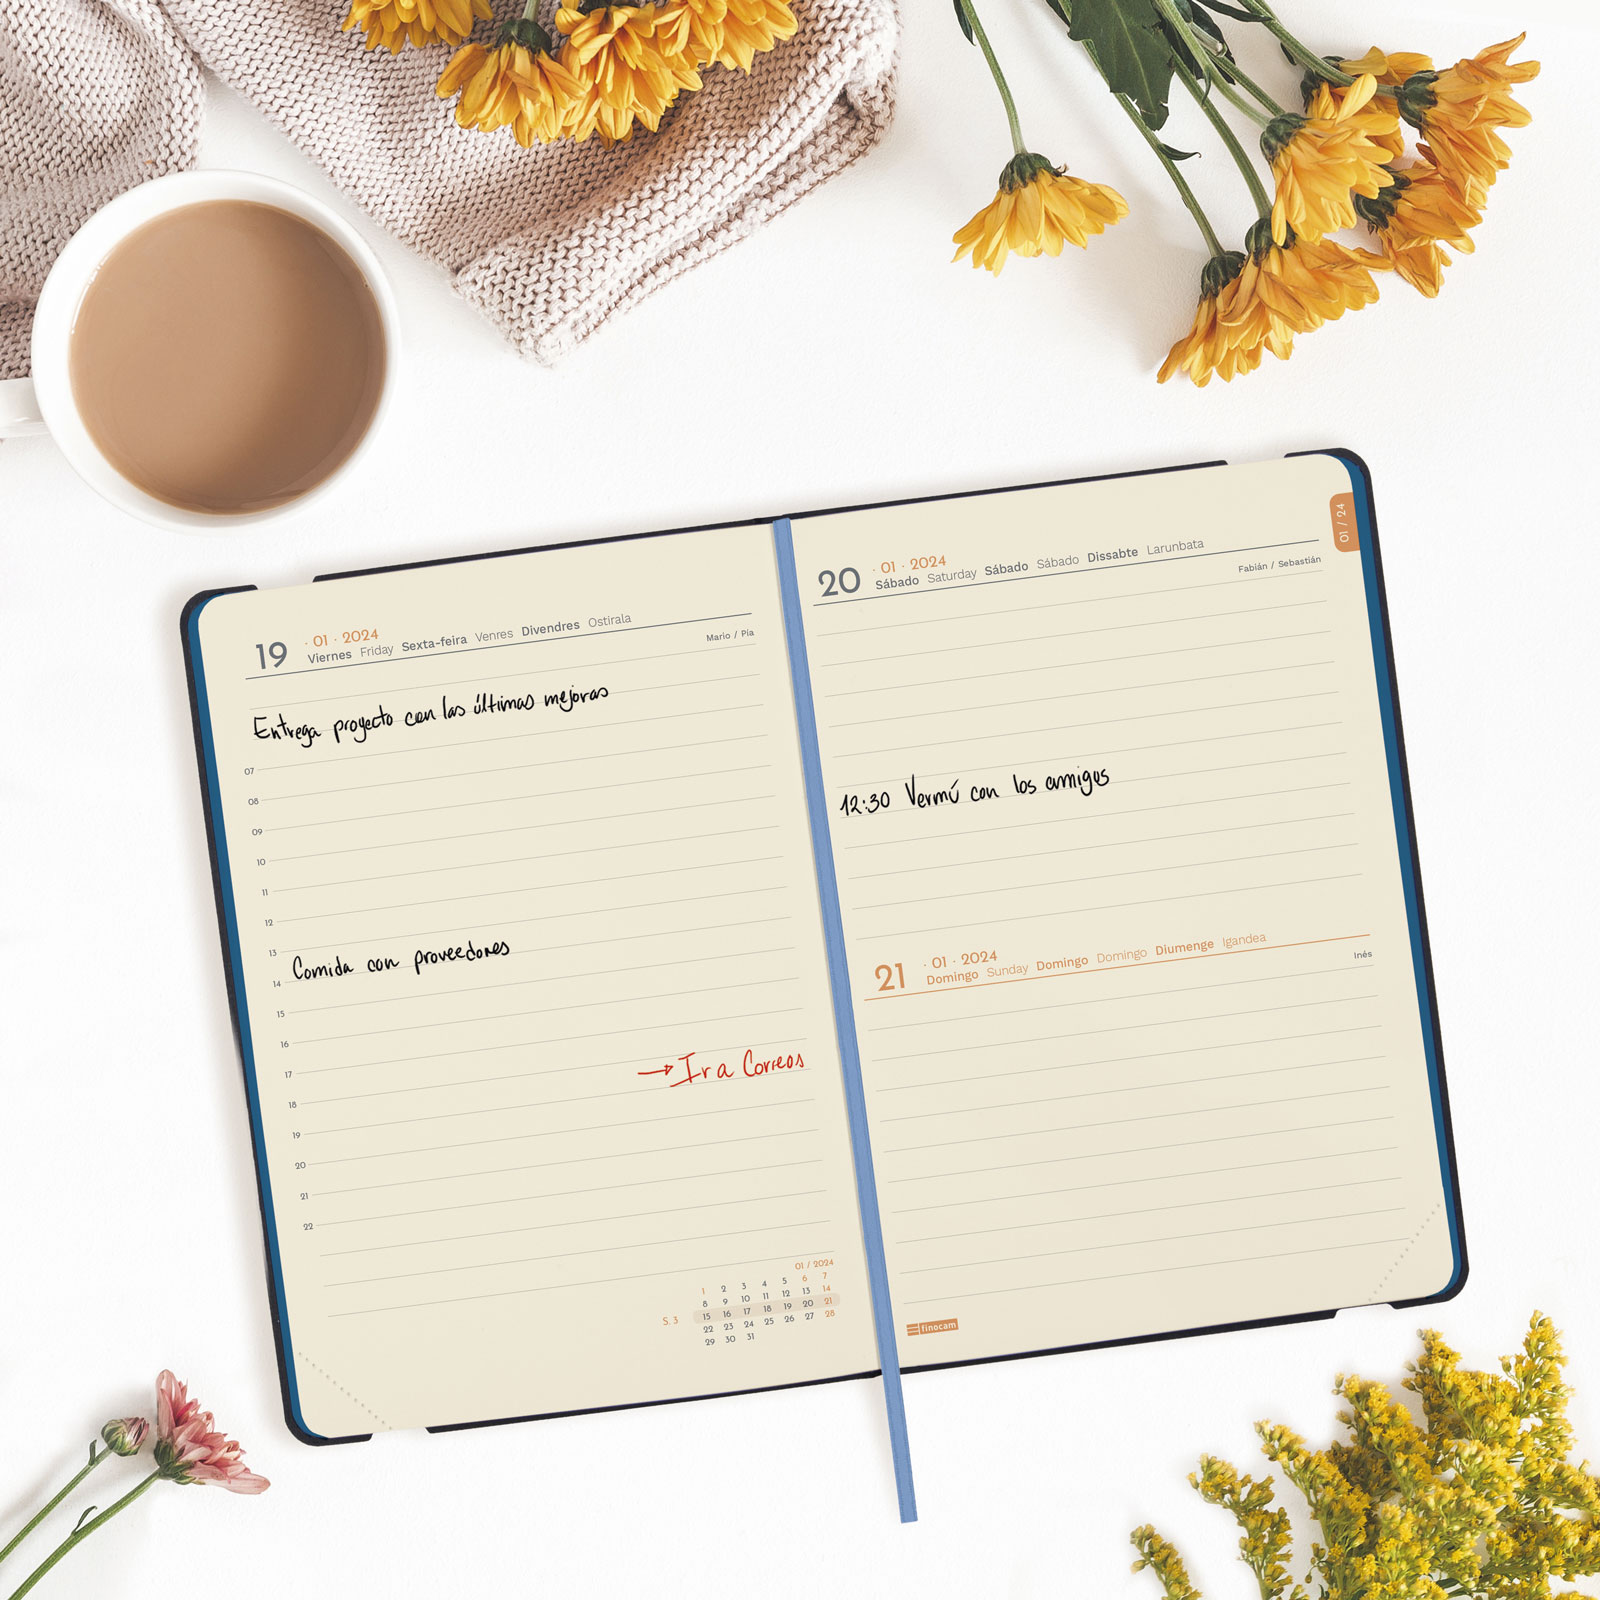 19 · 01 · 2024
Viernes Friday Sexta-feira Venres Divendres Ostirala
Mario / Pía
Entrega proyecto con las últimas mejoras
07
08
09
10
11
12
13
Comida con proveedores
14
15
16
→ Ir a Correos
17
18
19
20
21
22
01 / 2024
1 2 3 4 5 6 7
8 9 10 11 12 13 14
S. 3 15 16 17 18 19 20 21
22 23 24 25 26 27 28
29 30 31
01 / 24
20 · 01 · 2024
Sábado Saturday Sábado Sábado Dissabte Larunbata
Fabián / Sebastián
12:30 Vermú con los amigos
21 · 01 · 2024
Domingo Sunday Domingo Domingo Diumenge Igandea
Inés
finocam